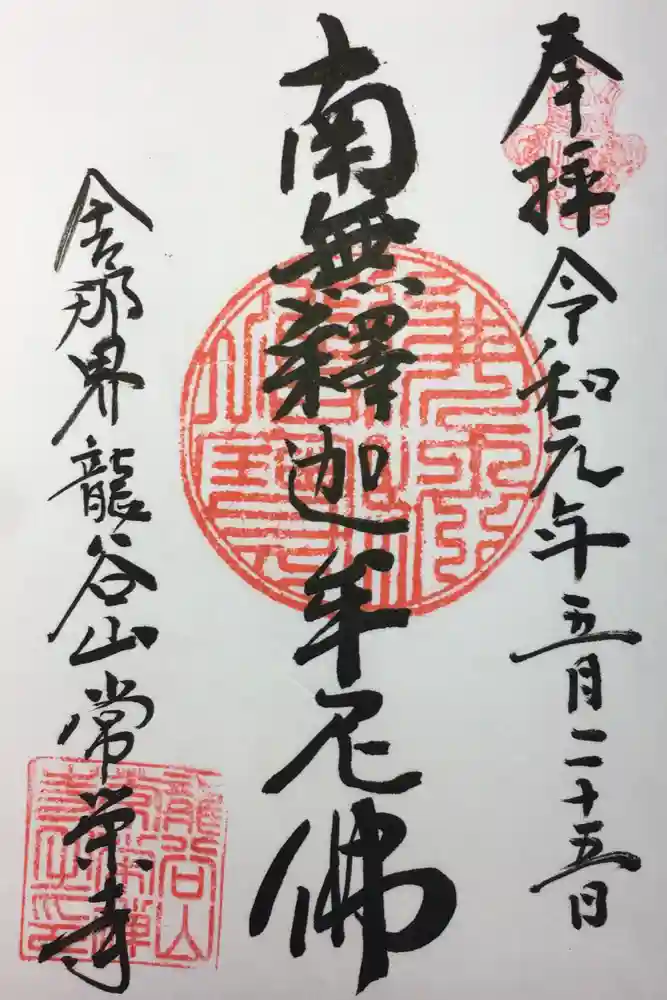 奉拝 令和元年五月二十五日
南無釋迦牟尼佛
舎那界龍谷山常栄寺